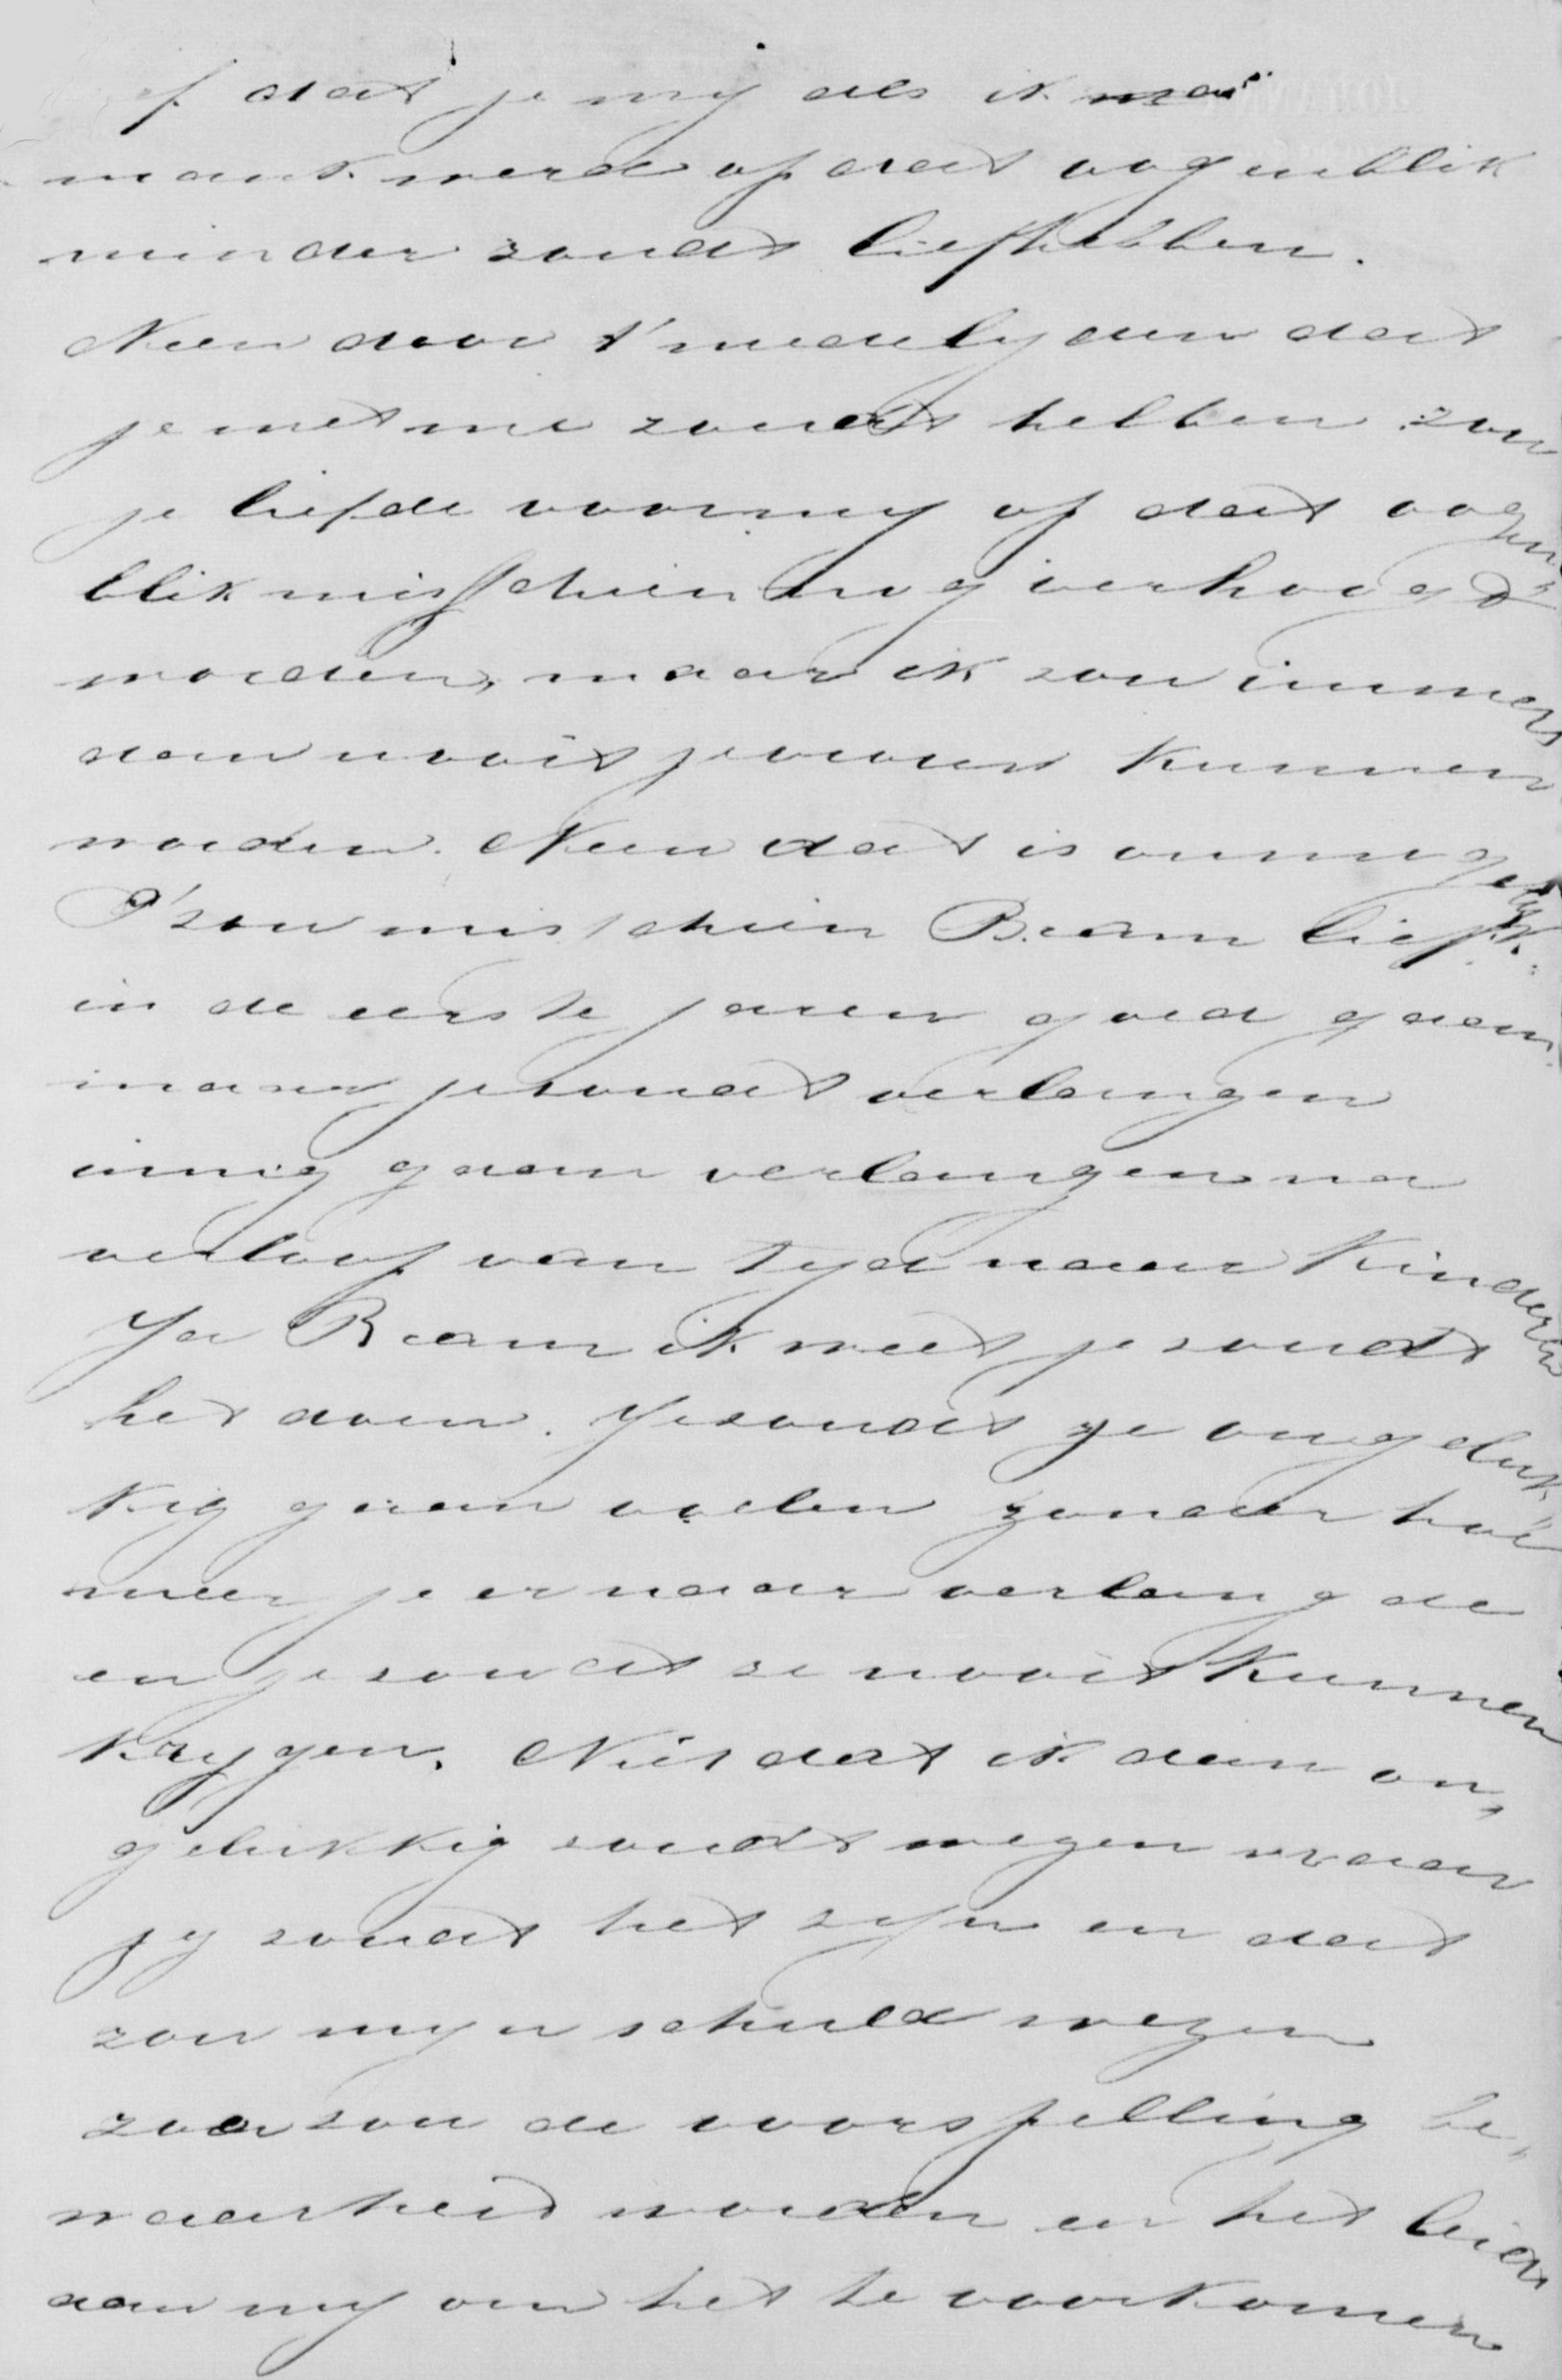 of dat je mij als ik
mank werd op dat oogenblik
minder zoudt liefhebben.
Neen door 't medelyden dat
je met me zoudt hebben zou
je liefde voor my op dat oogen
blik misschien nog verhoogd
worden, maar ik zou immers
dan nooit je vrouw kunnen
worden. Neen dat is onmogelyk.
't zou misschien Bram lief
in de eerste jaren goed gaan
maar je zoudt verlangen
innig gaan verlangen na
verloop van tyd naar kinderen
Ja Bram ik weet je zoudt
het doen. Je zoudt je ongeluk
kig gaan voelen zonder hoe
meer je er naar verlangde
en je zoudt ze nooit kunnen
krygen. Niet dat ik dan on„
gelukkig zoudt wezen maar
jy zoudt het zyn en dat
zou myn schuld wezen
zoo zou de voorspelling be„
waarheid worden en het leidt
aan my om het te voorkomen